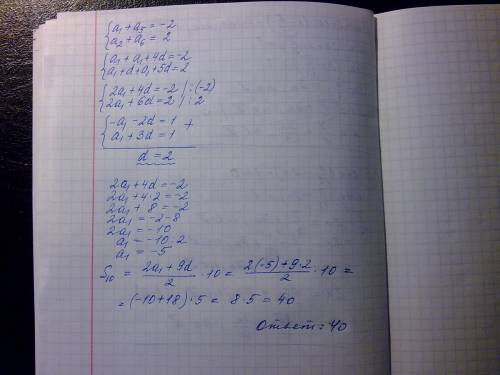 {a₁ + a₅ = -2
{a₂ + a₆ = 2
{a₁ + a₁ + 4d = -2
{a₁ + d + a₁ + 5d = 2
{2a₁ + 4d = -2 | : (-2)
{2a₁ + 6d = 2 | : 2
{-a₁ - 2d = 1 +
{a₁ + 3d = 1
d = 2
2a₁ + 4d = -2
2a₁ + 4·2 = -2
2a₁ + 8 = -2
2a₁ = -2-8
2a₁ = -10
a₁ = -10:2
a₁ = -5
S₁₀ = (2a₁ + 9d)/2 · 10 = (2(-5) + 9·2)/2 · 10 =
= (-10+18)·5 = 8·5 = 40
Ответ = 40